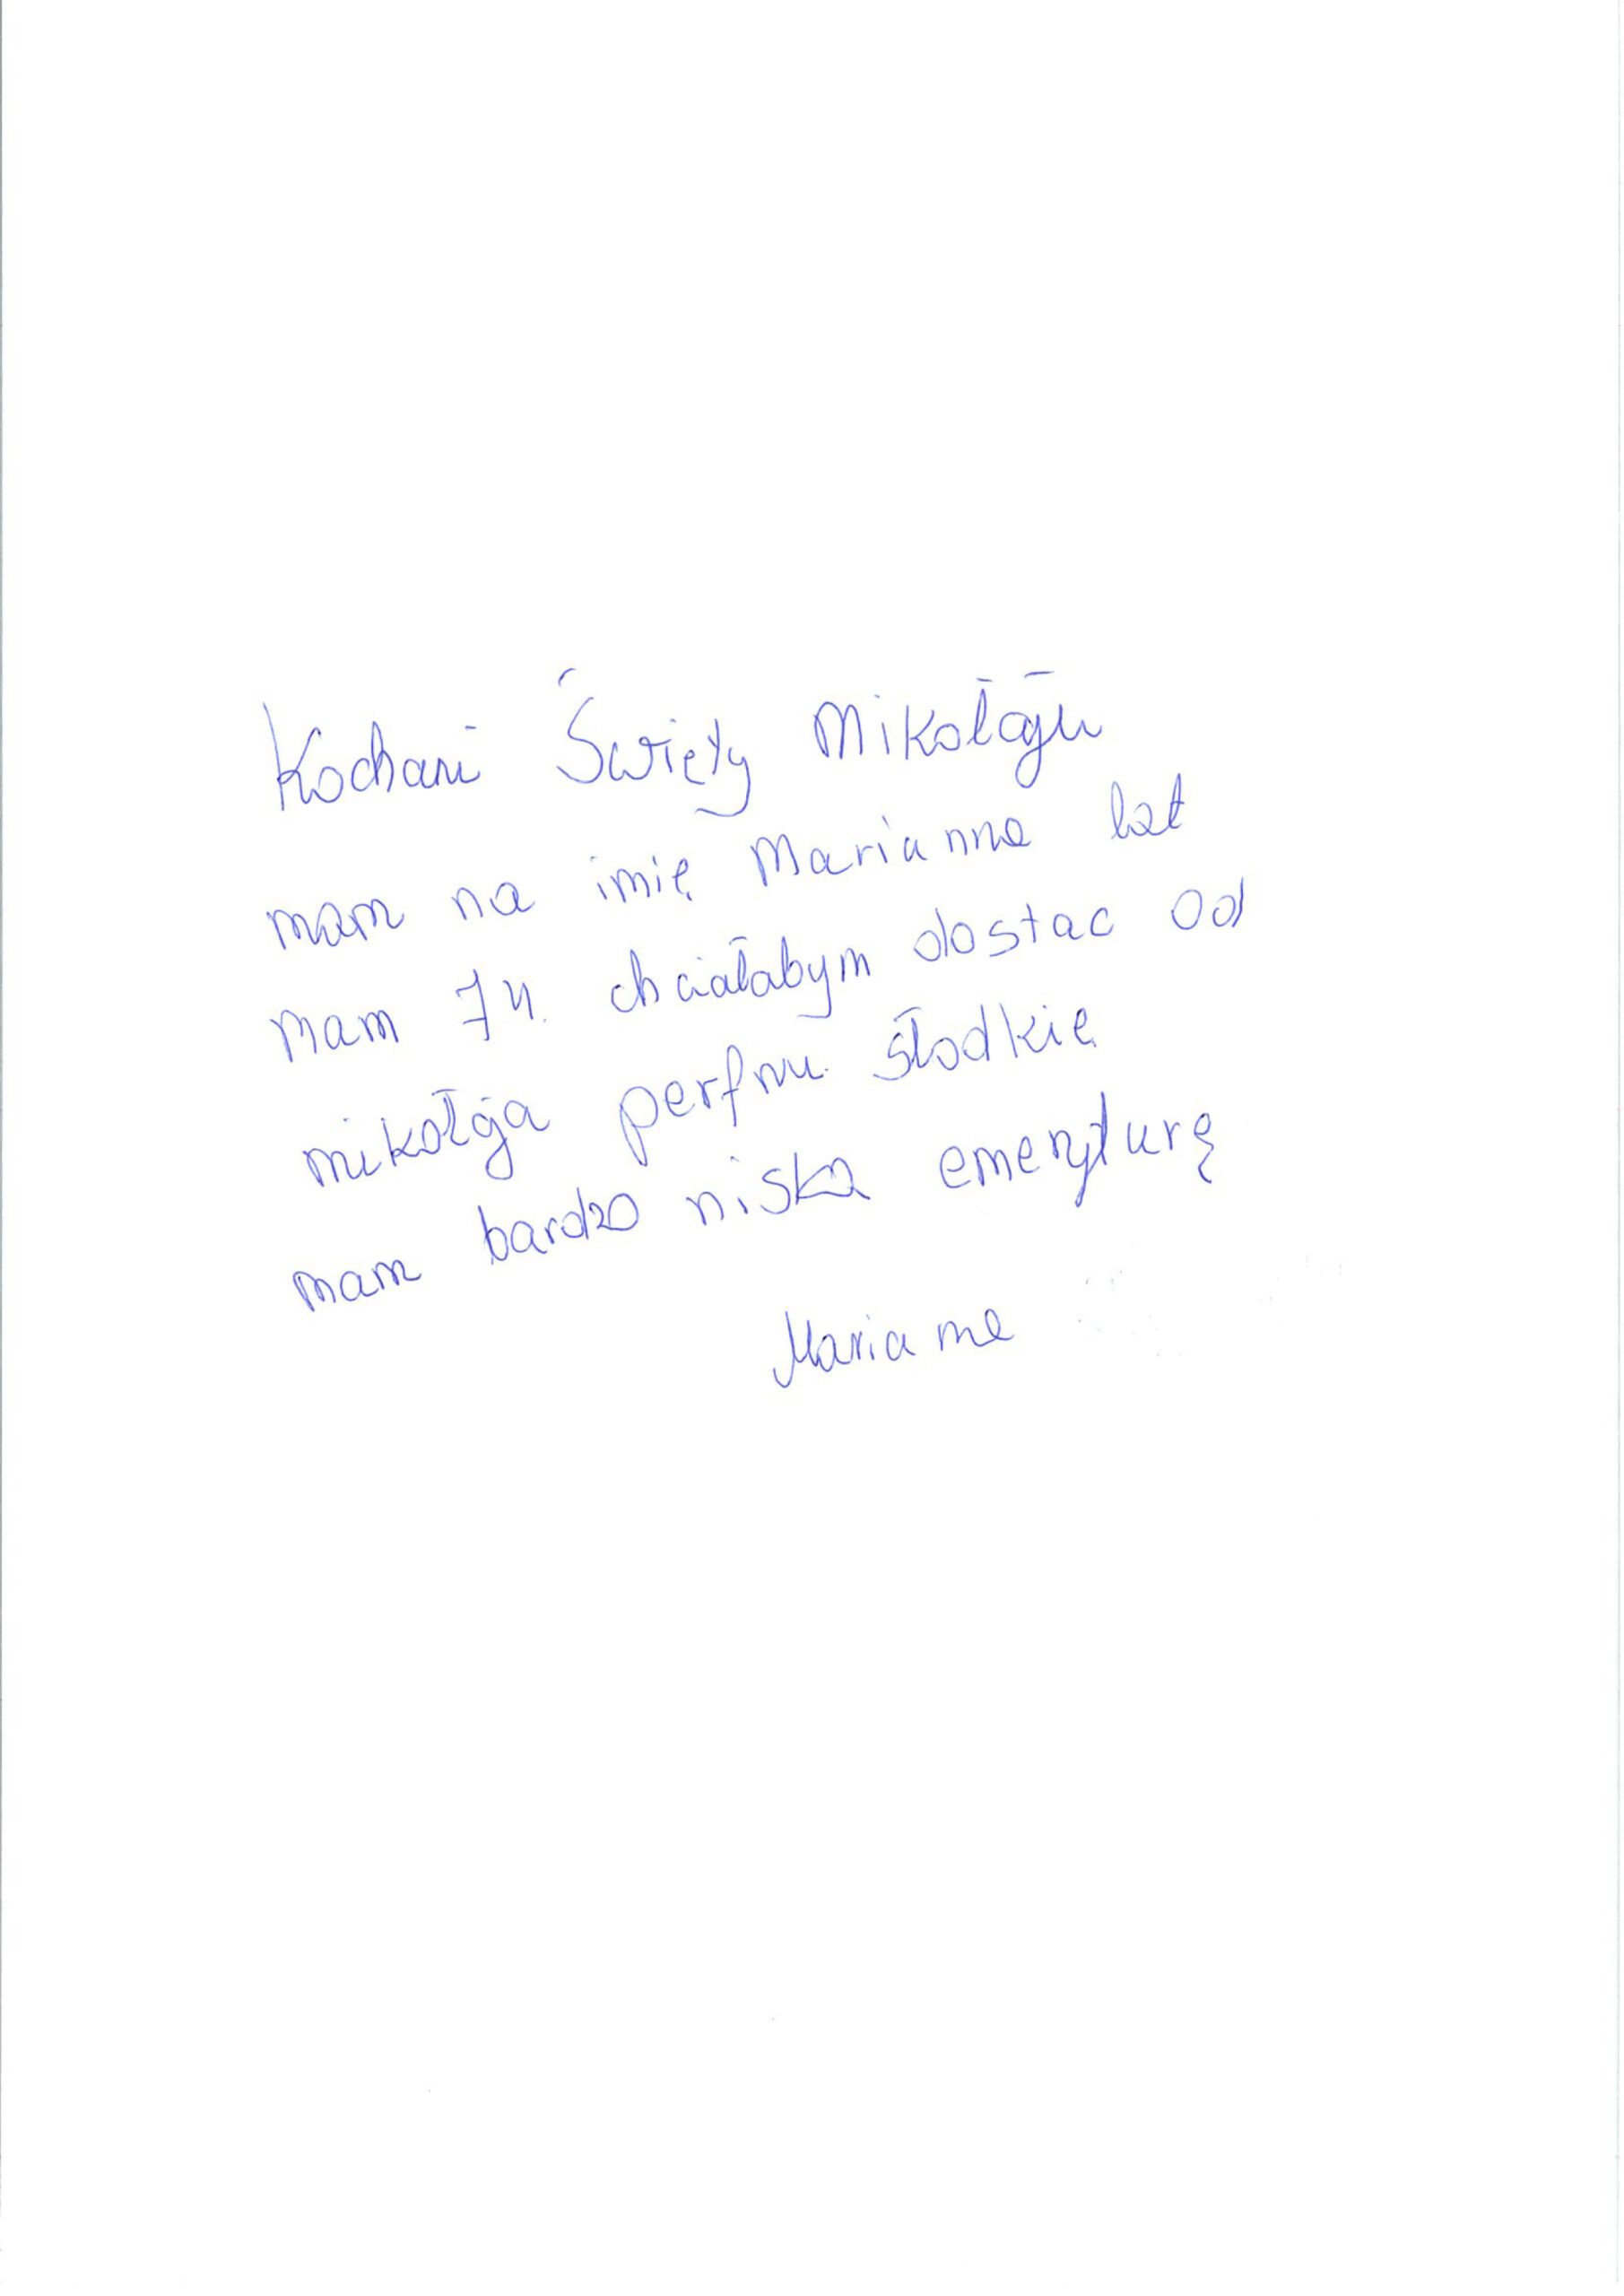 Kochani Święty Mikołaju
mam na imię Marianna lat
mam 74. chciałabym dostac od
mikołaja perfmu. słodkie
mam bardzo niska emeryturę
Marianna